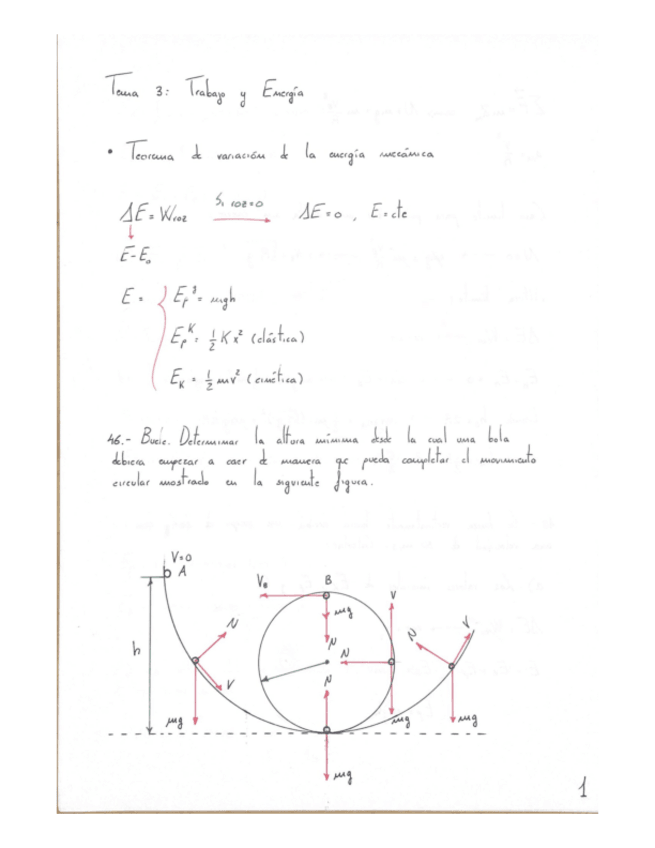 Tema 3: Trabajo y Energía
• Teorema de variación de la energía mecánica
ΔE = Wroz Si roz=0 ΔE = 0 , E = cte
E - E₀
E =
Epᵍ = mgh
Epᴷ = 1/2 K x² (elástica)
EK = 1/2 mv² (cinética)
46.- Bucle. Determinar la altura mínima desde la cual una bola
debiera empezar a caer de manera qe pueda completar el movimiento
circular mostrado en la siguiente figura.
V=0
A
VB
B
mg
N
V
N
V
mg
h
N
mg
N
mg
N
V
mg
1